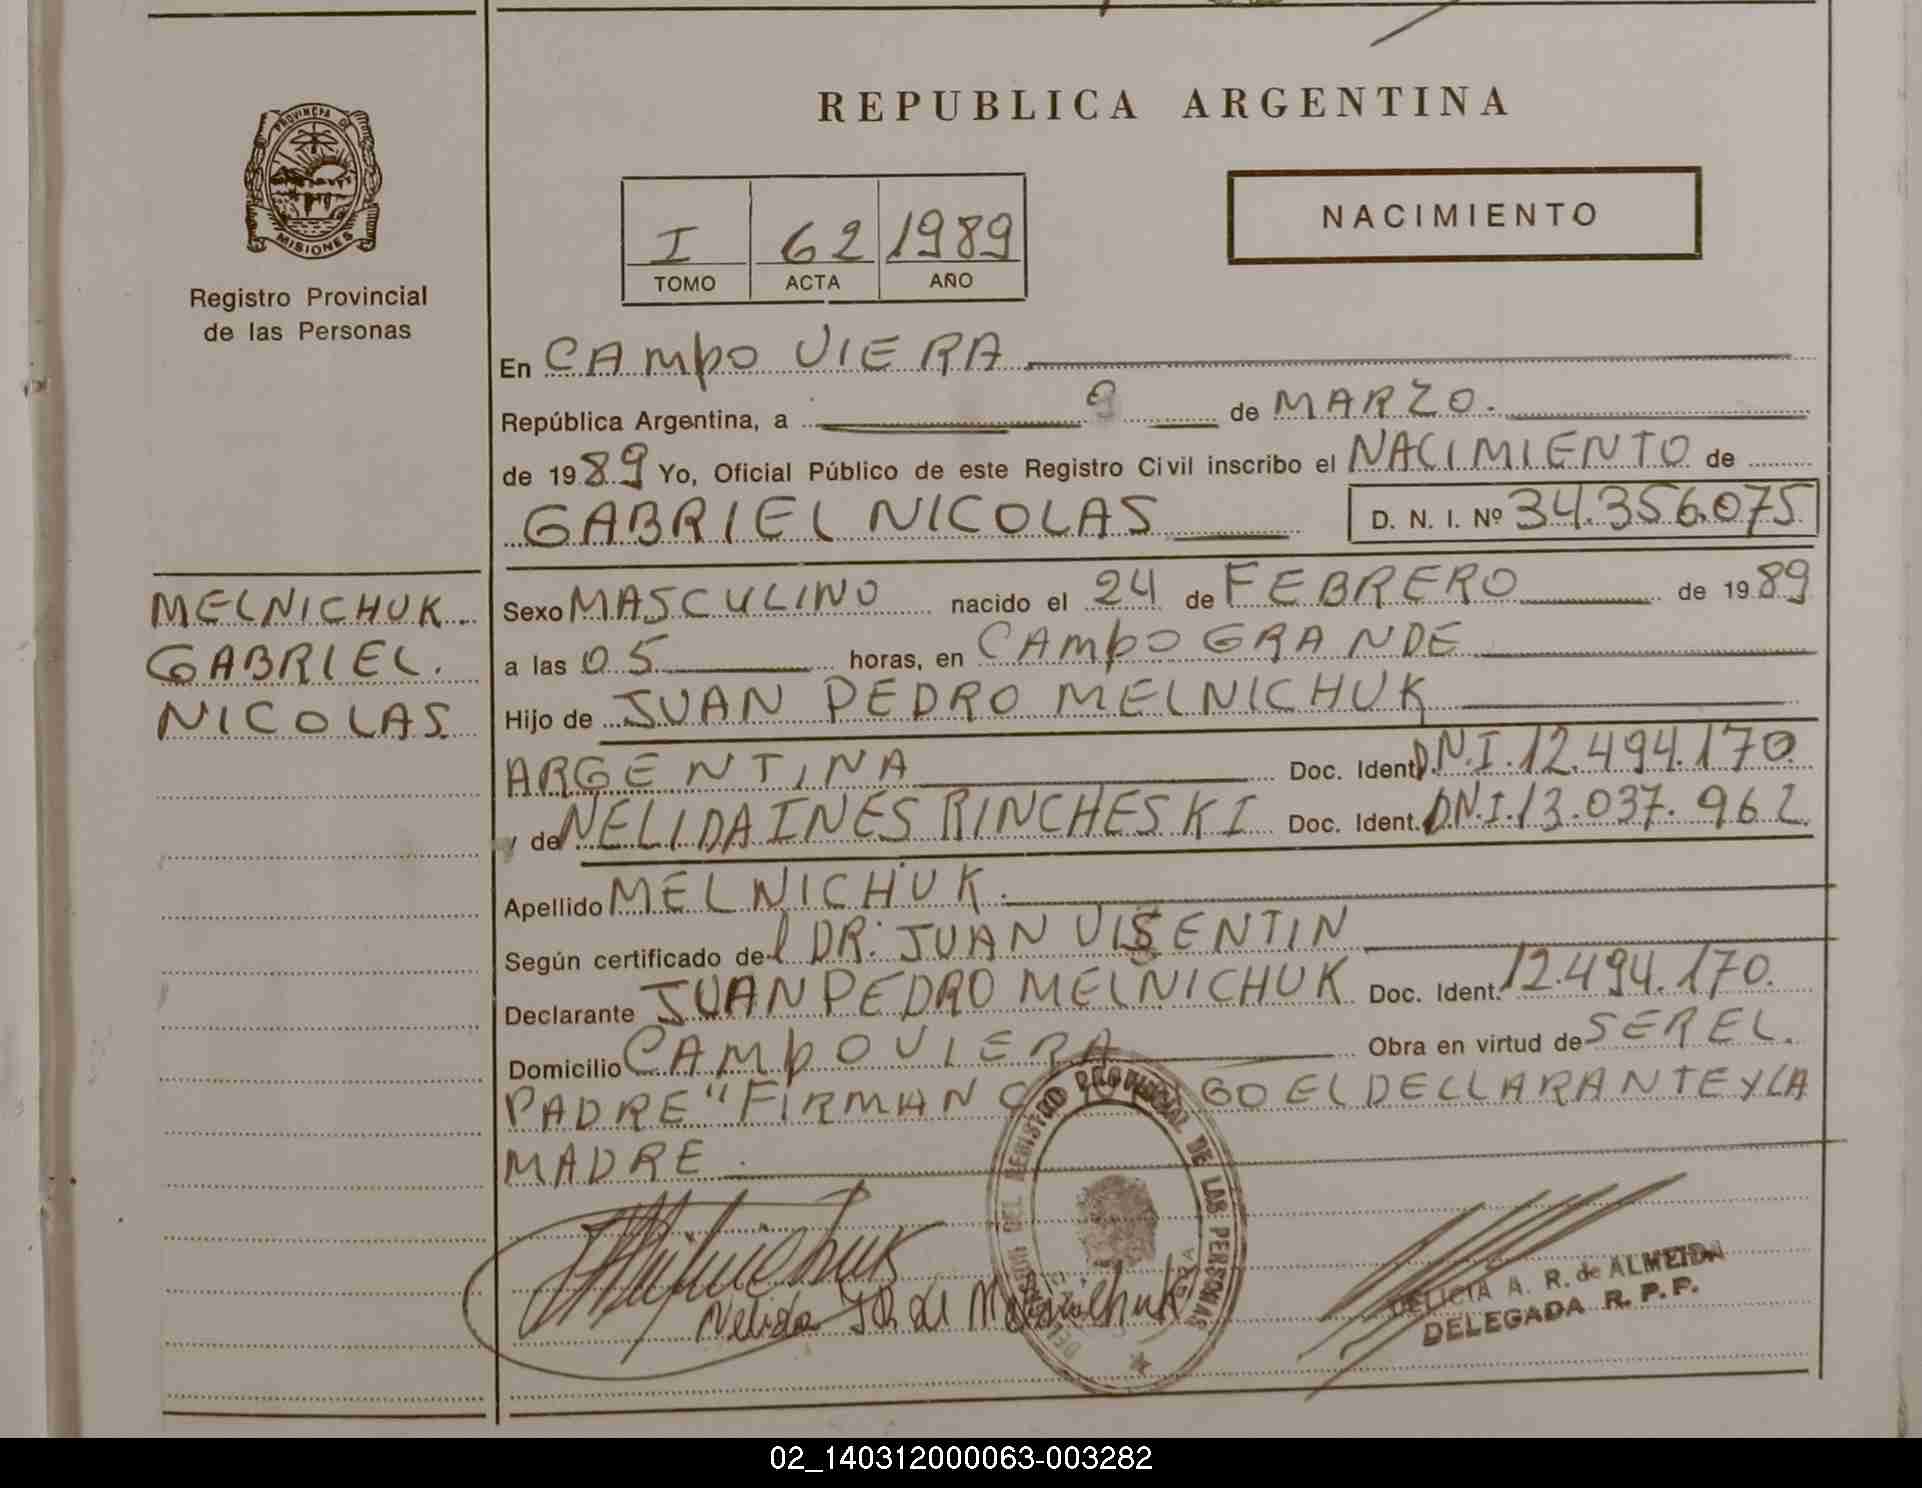 REPUBLICA ARGENTINA
PROVINCIA DE
MISIONES
Registro Provincial
de las Personas
I 62 1989
TOMO ACTA AÑO
NACIMIENTO
En CAMPO VIERA
República Argentina, a 9 de MARZO.
de 1989 Yo, Oficial Público de este Registro Civil inscribo el NACIMIENTO de
GABRIEL NICOLAS D. N. I. Nº 34.356.075
MELNICHUK
GABRIEL.
NICOLAS
Sexo MASCULINO nacido el 24 de FEBRERO de 1989
a las 05 horas, en CAMPO GRANDE
Hijo de JUAN PEDRO MELNICHUK
ARGENTINA Doc. Ident. D.N.I. 12.494.170
y de NELIDA INES RINCHESKI Doc. Ident. D.N.I. 13.037.962
Apellido MELNICHUK.
Según certificado del DR. JUAN VISENTIN
Declarante JUAN PEDRO MELNICHUK Doc. Ident. 12.494.170.
Domicilio CAMPO VIERA Obra en virtud de SER EL
PADRE "FIRMAN GO EL DECLARANTE Y LA
MADRE.
DEL REGISTRO PROVINCIAL DE LAS PERSONAS
Melnichuk
Nelida de Melnichuk
DELICIA A. R. de ALMEIDA
DELEGADA R. P. P.
02_140312000063-003282